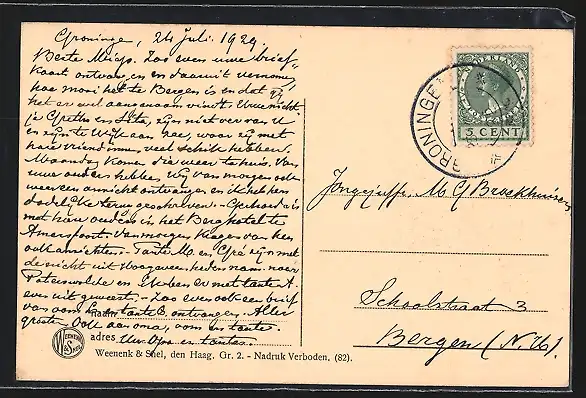 Groningen, 24 Juli. 1929.
Beste Miep. Zoo even uwe brief-
kaart ontvangen en daaruit vernomen
hoe mooi het te Bergen is en dat
het er wel aangenaam vindt.
je Gretha en Lita, zijn niet ver van U
en zijn te Wijk aan Zee, waar zij met
hare vriendinnen veel schik hebben.
Maandag komen die weer te huis. Van
uwe ouders hebben wij van morgen ook
weer een ansicht ontvangen en ik heb hen
dadelijk terug geschreven. - Gerhard is
met haar ouders in het Berghotel te
Amersfoort. Van morgen kregen van hen
ook ansichten. - Tante M. en
uit Hoogeveen heden nam. naar
Paterswolde en ik ben er met tante A.
even uit geweest. - Zoo even ook een brief
van oom tante B. ontvangen. Allen
groeten ook aan oma, oom en tante.
Uw Opa en tantes.
naam
adres
WEENENK & SNEL
Weenenk & Snel, den Haag. Gr. 2. - Nadruk Verboden. (82).
NEDERLAND
5 CENT
GRONINGEN
Jongejuffr. M. G. Broekhuisen
Schoolstraat 3
Bergen (N.H.)